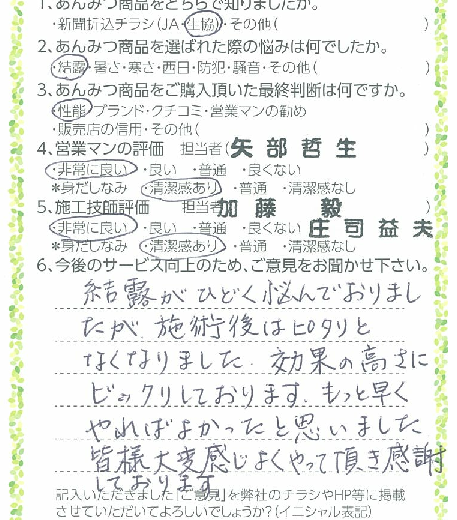 1.あんみつ商品をどちらで知りましたか。
・新聞折込チラシ(JA・生協)・その他( )
2.あんみつ商品を選ばれた際の悩みは何でしたか。
・結露・暑さ・寒さ・西日・防犯・騒音・その他( )
3.あんみつ商品をご購入頂いた最終判断は何ですか。
・性能・ブランド・クチコミ・営業マンの勧め
・販売店の信用・その他( )
4.営業マンの評価 担当者(矢部哲生)
・非常に良い・良い ・普通 ・良くない
*身だしなみ ・清潔感あり ・普通 ・清潔感なし
5.施工技師評価 担当者 加藤 毅
・非常に良い ・良い ・普通 ・良くない 庄司益夫
*身だしなみ ・清潔感あり ・普通 ・清潔感なし
6.今後のサービス向上のため、ご意見をお聞かせ下さい。
結露がひどく悩んでおりまし
たが 施術後はピタリと
なくなりました. 効果の高さに
ビックリしております. もっと早く
やればよかったと思いました
皆様大変感じよくやって頂き感謝
しております
記入いただきました「ご意見」を弊社のチラシやHP等に掲載
させていただいてよろしいでしょうか?(イニシャル表記)